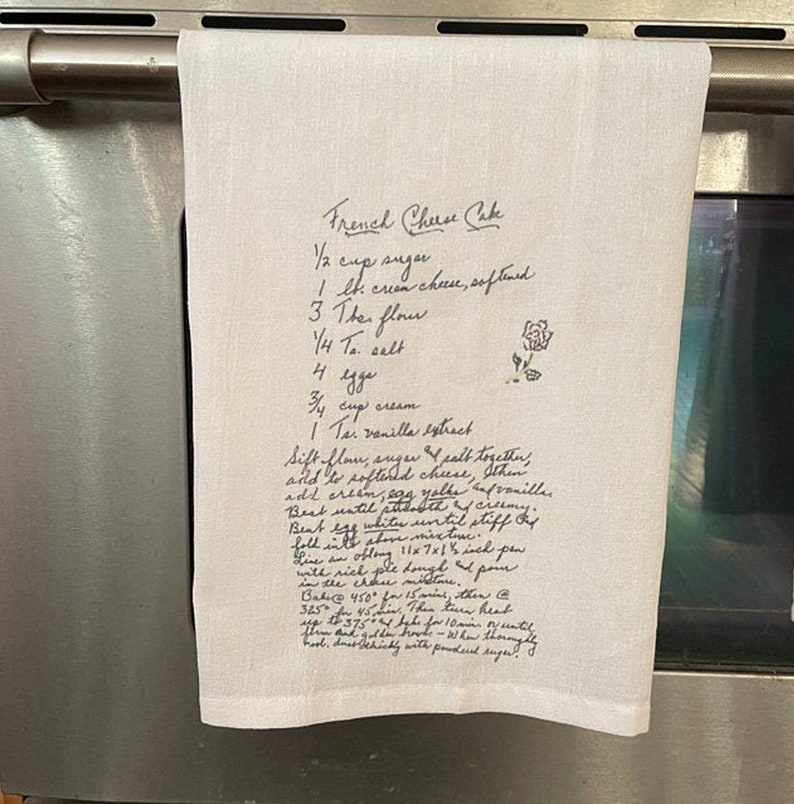 French Cheese Cake
1/2 cup sugar
1 lb. cream cheese, softened
3 Tbs. flour
1/4 Ts. salt
4 eggs
3/4 cup cream
1 Ts. vanilla extract
Sift flour, sugar and salt together,
add to softened cheese, then
add cream, egg yolks and vanilla.
Beat until smooth and creamy.
Beat egg whites until stiff and
fold into above mixture.
Line an oblong 11x7x1 1/2 inch pan
with rich pie dough and pour
in the cheese mixture.
Bake @ 450° for 15 mins, then @
325° for 45 min. Then turn heat
up to 375° and bake for 10 min or until
firm and golden brown - When thoroughly
cool. dust thickly with powdered sugar.